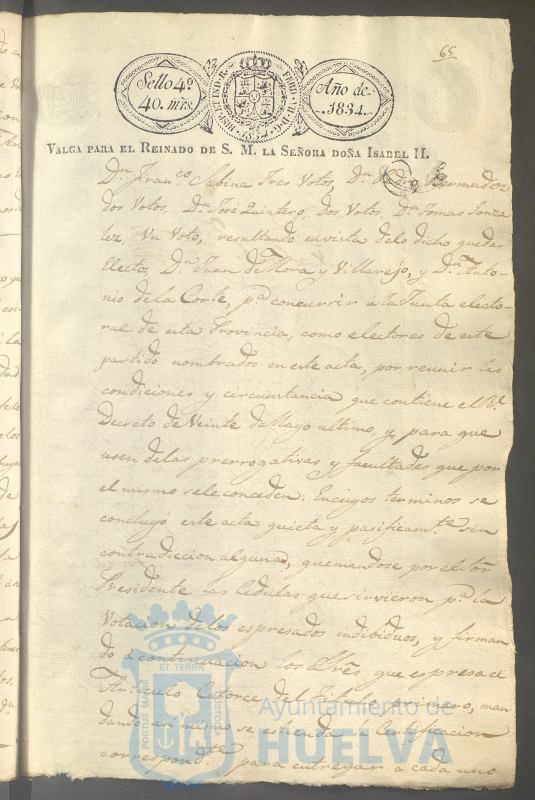 65
Sello 4º
40. mrs.
HISP. ET IND. R.
FERD. VII. D. G.
1834
Año de
1834.
VALGA PARA EL REINADO DE S. M. LA SEÑORA DOÑA ISABEL II.
Dn. Franco. Sabina Tres Votos, Dn. Bermudez
dos Votos, Dn. Jose Quintero, dos Votos, Dn. Tomas Gonza
lez, Un Voto, resultando en vista delo dicho quedar
Electos, Dn. Juan de Mora y Villarejo, y Dn. Anto-
nio de la Corte, pa. concurrir a la Junta electo-
ral de esta Provincia, como electores de este
partido nombrados en este acta, por reunir las
condiciones y circunstancia que contiene el Rl.
Decreto de Veinte de Mayo ultimo, y para que
usen delas prerrogativas y facultades que por
el mismo sele conceden: En cuyos terminos se
concluyó este acta quieta y pasificamte. sin
contradiccion alguna, quemandose por el Sor.
Presidente las Cedulas que sirvieron pa. la
Votacion de los espresados individuos, y firman
do a continuacion los Sres. que espresa el
Articulo Catorce del Titulo primero, man
dando asi mismo se estienda la Certificacion
correspondte. para entregar a cada uno
ET TERRA
PORTUS MARIS
CUSTODIA
Ayuntamiento de
HUELVA